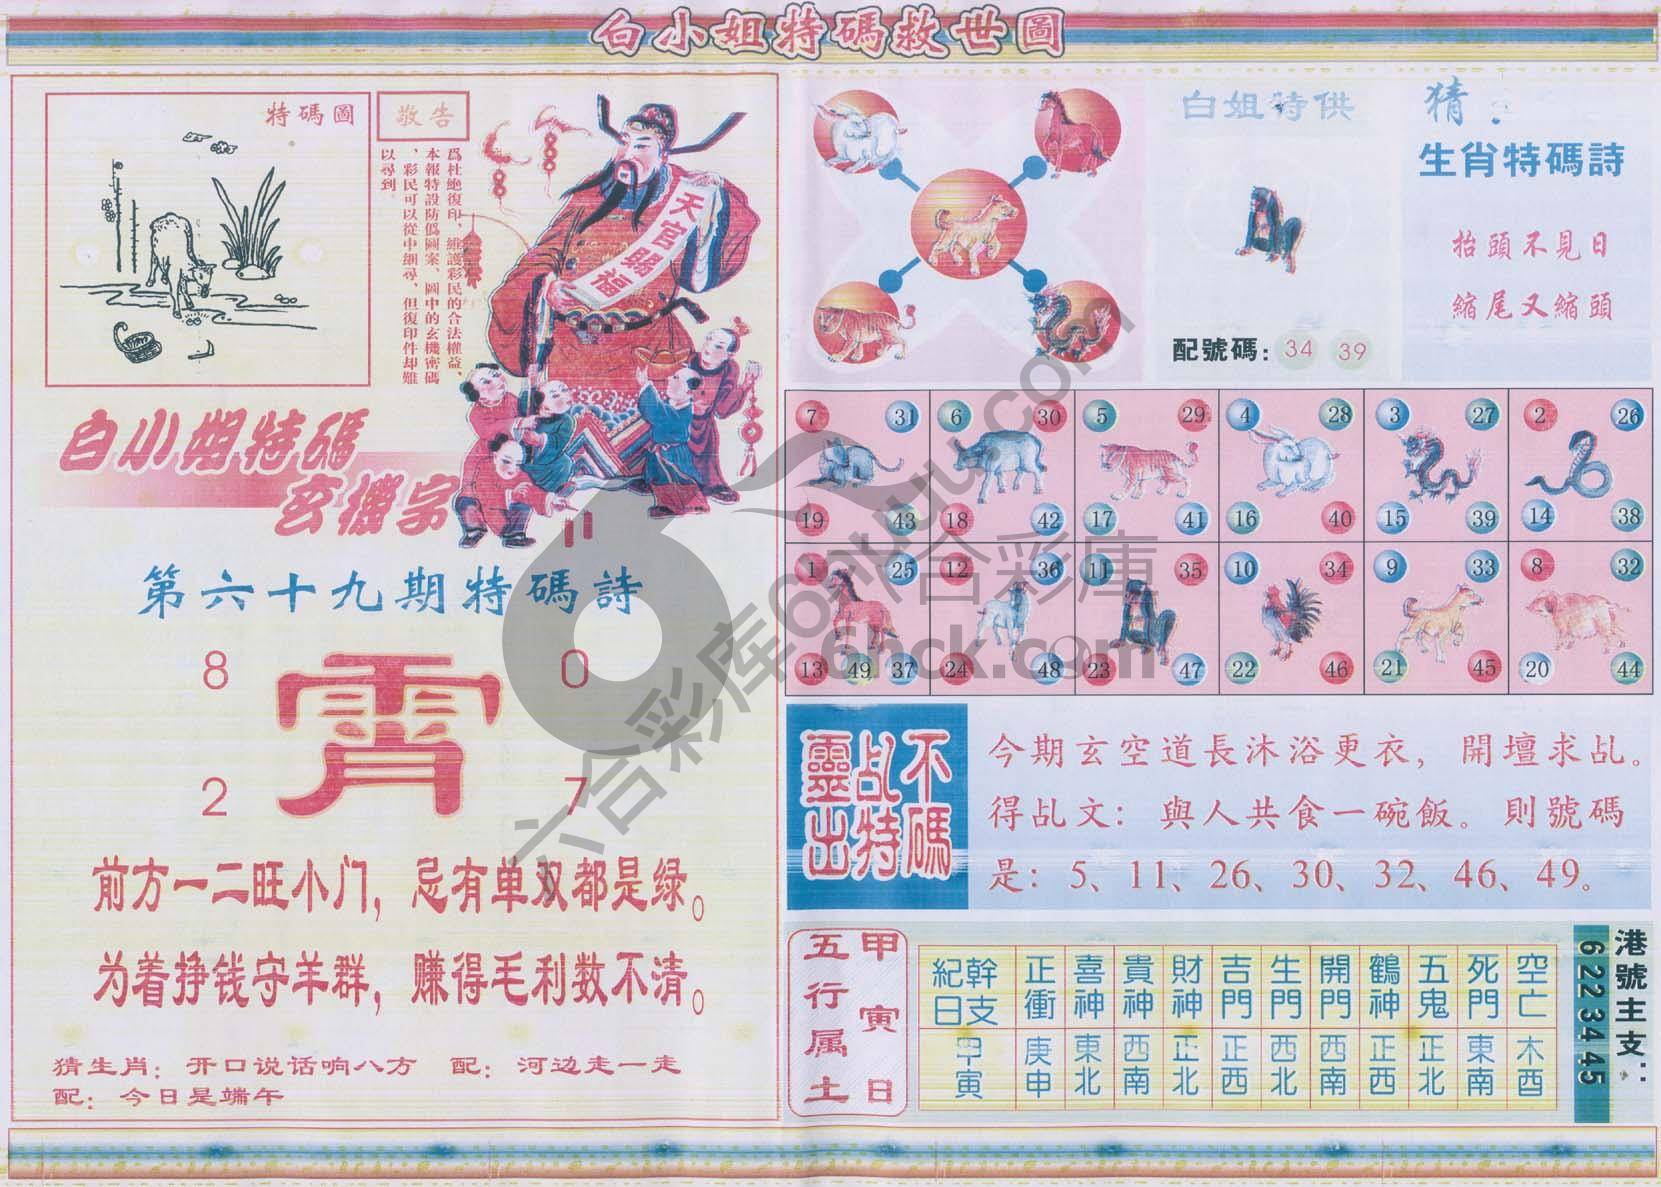 白小姐特碼救世圖
特碼圖
敬告
爲杜絶復印，維護彩民的合法權益，
本報特設防僞圖案、圖中的玄機密碼
，彩民可以從中細尋，但復印件却難
以尋到。
天官賜福
白小姐特碼
玄機字
第六十九期特碼詩
8 0
霄
2 7
前方一二旺小门，忌有单双都是绿。
为着挣钱守羊群，赚得毛利数不清。
猜生肖：开口说话响八方 配：河边走一走
配：今日是端午
白姐特供
配號碼：34 39
猜：
生肖特碼詩
抬頭不見日
縮尾又縮頭
7 31 6 30 5 29 4 28 3 27 2 26
19 43 18 42 17 41 16 40 15 39 14 38
1 25 12 36 11 35 10 34 9 33 8 32
13 49 37 24 48 23 47 22 46 21 45 20 44
不碼
乩特
靈出
今期玄空道長沐浴更衣，開壇求乩。
得乩文：與人共食一碗飯。則號碼
是：5、11、26、30、32、46、49。
甲寅日
五行属土
紀日幹支 正衝 喜神 貴神 財神 吉門 生門 開門 鶴神 五鬼 死門 空亡
甲寅 庚申 東北 西南 正北 正西 西北 西南 正西 正北 東南 木酉
港號主支：
6 22 34 45
六合彩库 6huuu.com
六合彩庫
6hck.com